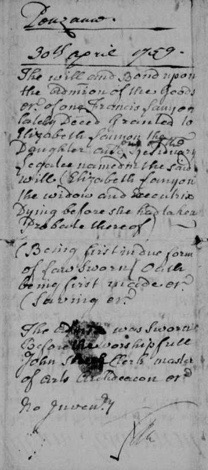 Penzance.
30th April 1759.
The Will and Bond upon
the admion of the Goods
&c. of one Francis Sanyon
lately Deced Granted to
Elizabeth Sanyon the
Daughter and one of the residuary
Legatee named in the said
will (Elizabeth Sanyon
the widow and Executrix
Dying before she had taken
Probate thereof
(Being first in due form
of Law sworn Oath
being first
(Saving &c.
The was sworn
Before the worshipfull
John Clerk master
of arts Archdeacon &c.
No Inventy